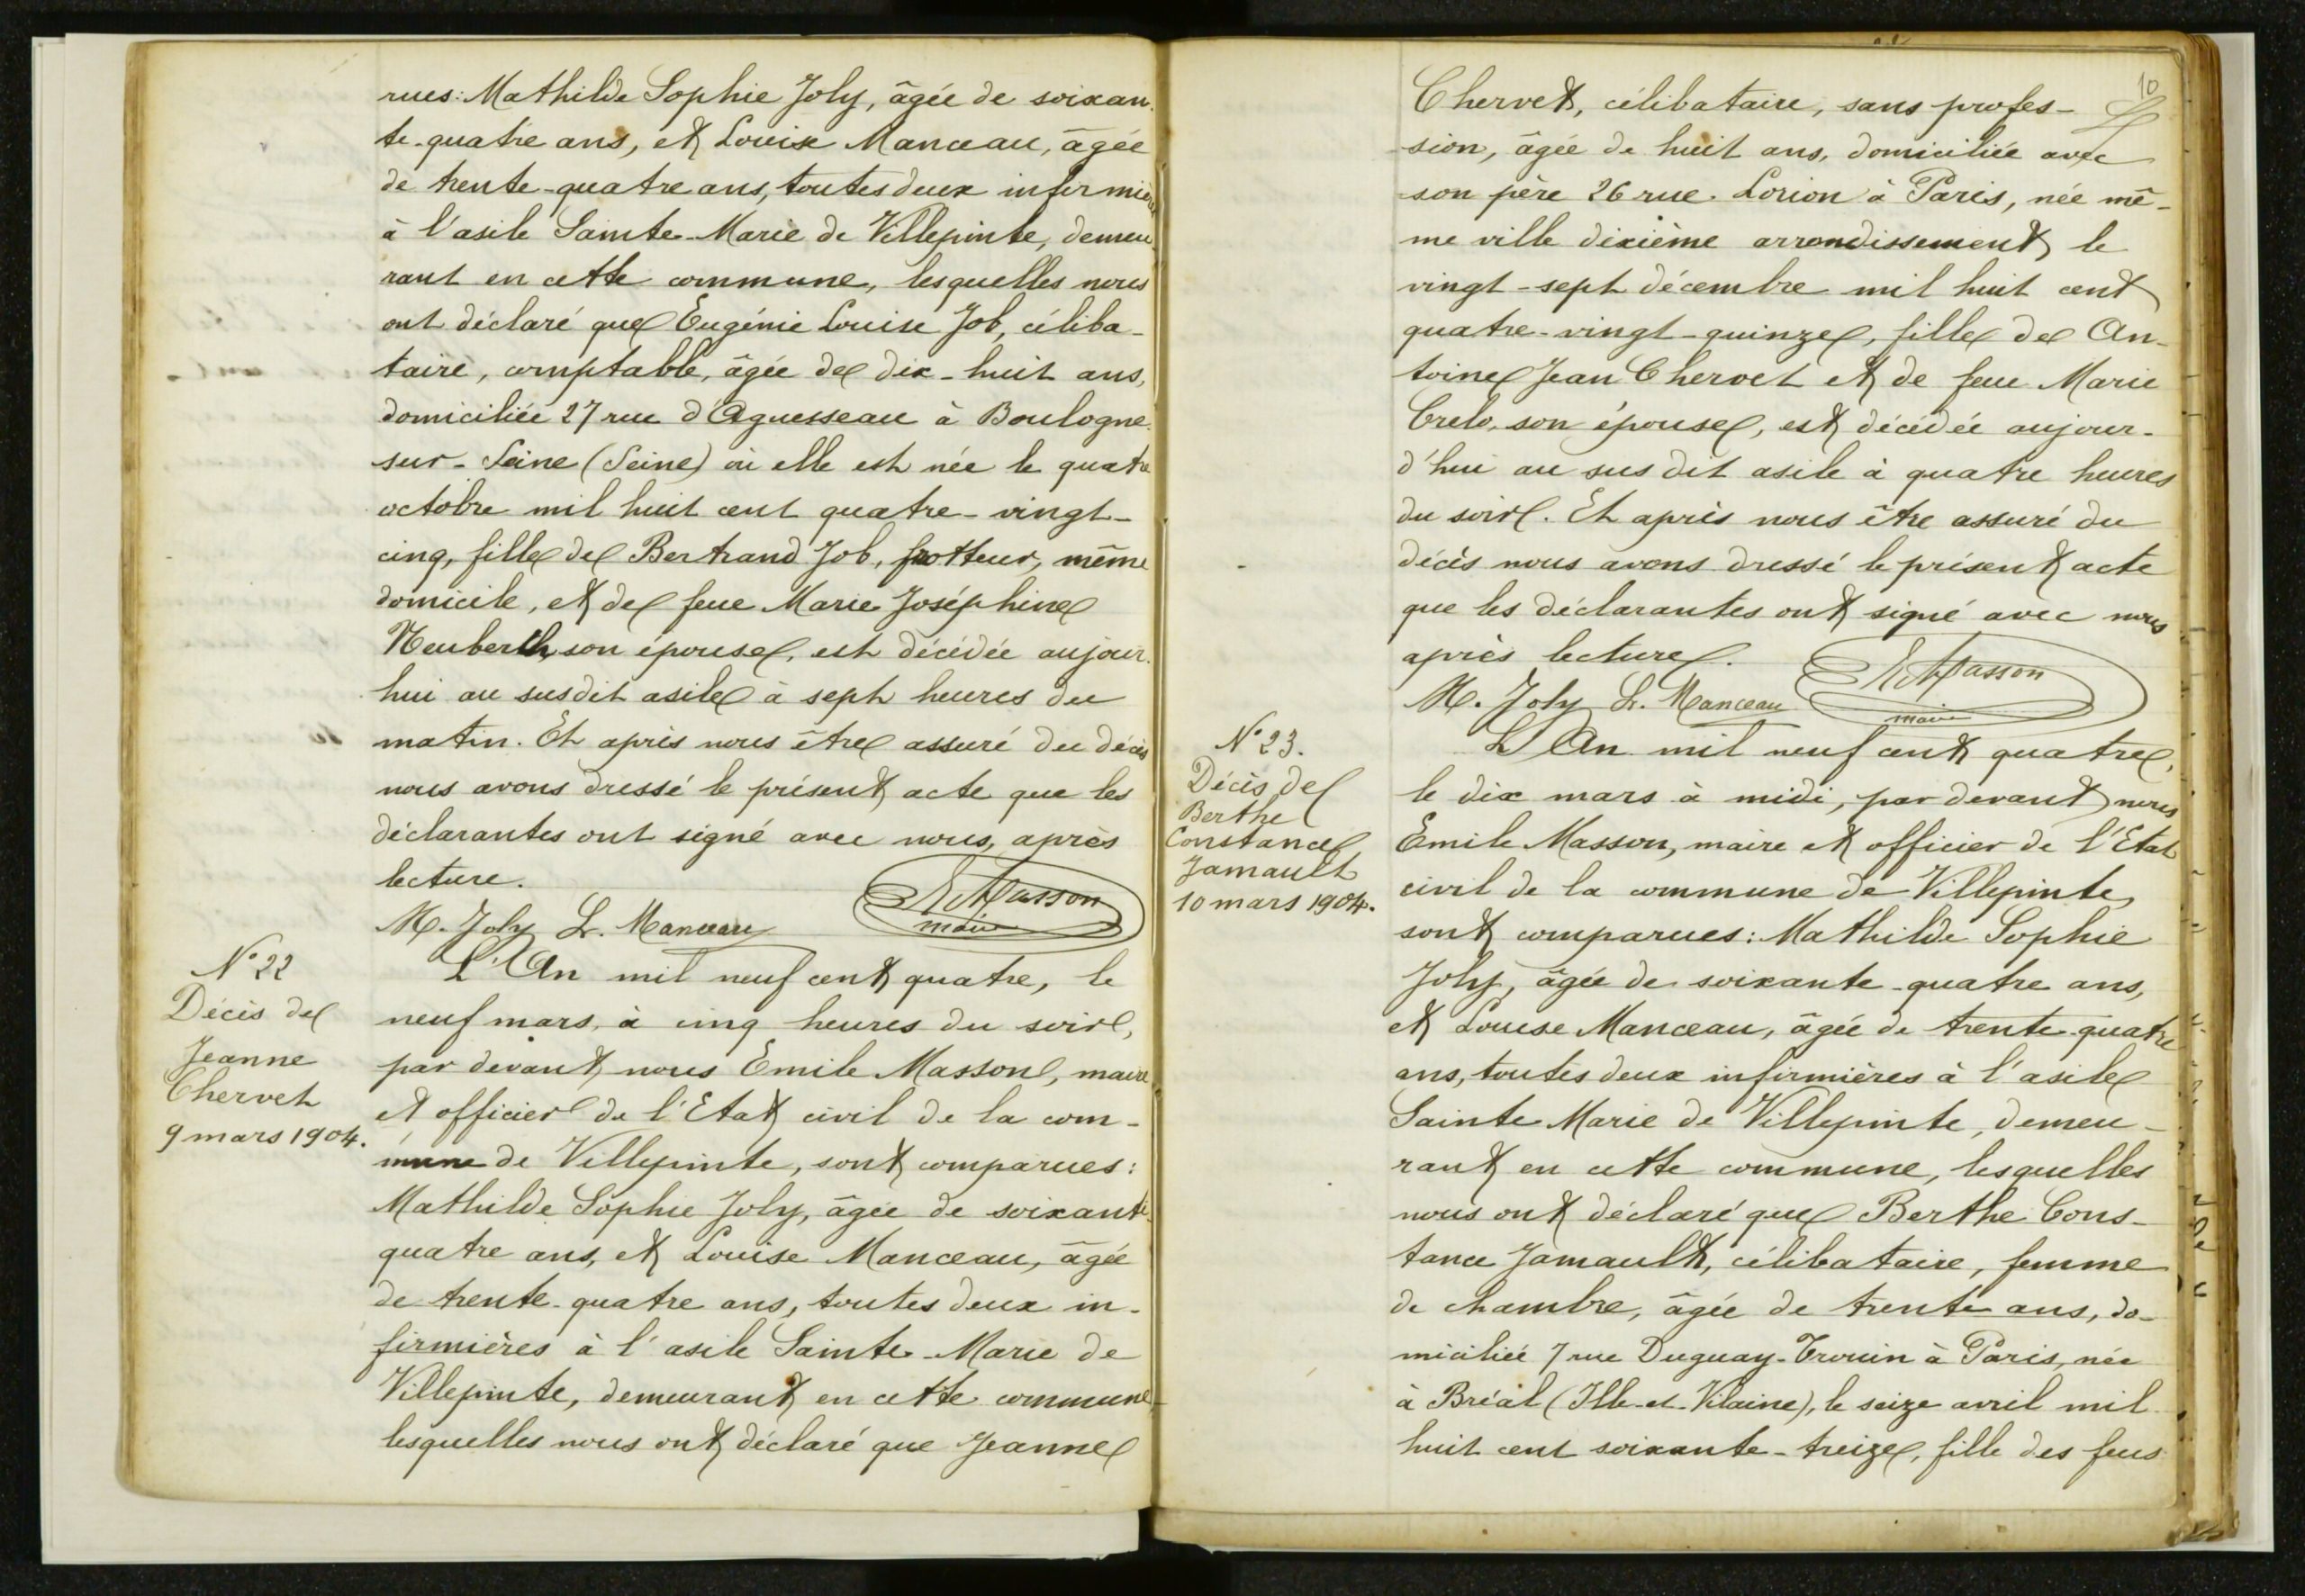 rues: Mathilde Sophie Joly, âgée de soixan-
te-quatre ans, et Louise Manceau, âgée
de trente-quatre ans, toutes deux infirmières
à l'asile Sainte-Marie de Villepinte, demeu-
rant en cette commune, lesquelles nous
ont déclaré que Eugénie Louise Job, céliba-
taire, comptable, âgée de dix-huit ans,
domiciliée 27 rue d'Aguesseau à Boulogne-
sur-Seine (Seine) où elle est née le quatre
octobre mil huit cent quatre-vingt-
cinq, fille de Bertrand Job, frotteur, même
domicile, et de feue Marie Joséphine
Neuberth, son épouse, est décédée aujour-
hui au susdit asile à sept heures du
matin. Et après nous être assuré du décès
nous avons dressé le présent acte que les
déclarantes ont signé avec nous, après
lecture.
M. Joly L. Manceau E Masson
maire
N° 22
Décès de
Jeanne
Chervet
9 mars 1904.
L'An mil neuf cent quatre, le
neuf mars, à cinq heures du soir,
par devant nous Emile Masson, maire
et officier de l'Etat civil de la com-
mune de Villepinte, sont comparues:
Mathilde Sophie Joly, âgée de soixante-
quatre ans, et Louise Manceau, âgée
de trente-quatre ans, toutes deux in-
firmières à l'asile Sainte-Marie de
Villepinte, demeurant en cette commune,
lesquelles nous ont déclaré que Jeanne
10
Chervet, célibataire, sans profes-
sion, âgée de huit ans, domiciliée avec
son père 26 rue Lorion à Paris, née mê-
me ville dixième arrondissement le
vingt-sept décembre mil huit cent
quatre-vingt-quinze, fille de An-
toine Jean Chervet et de feue Marie
Crelo, son épouse, est décédée aujour-
d'hui au susdit asile à quatre heures
du soir. Et après nous être assuré du
décès nous avons dressé le présent acte
que les déclarantes ont signé avec nous
après lecture.
M. Joly L. Manceau E Masson
maire
N° 23.
Décès de
Berthe
Constance
Jamault
10 mars 1904.
L'An mil neuf cent quatre,
le dix mars à midi, par devant nous
Emile Masson, maire et officier de l'Etat
civil de la commune de Villepinte,
sont comparues: Mathilde Sophie
Joly, âgée de soixante-quatre ans,
et Louise Manceau, âgée de trente-quatre
ans, toutes deux infirmières à l'asile
Sainte Marie de Villepinte, demeu-
rant en cette commune, lesquelles
nous ont déclaré que Berthe Cons-
tance Jamault, célibataire, femme
de chambre, âgée de trente ans, do-
miciliée 7 rue Duguay-Trouin à Paris, née
à Bréal (Ille-et-Vilaine), le seize avril mil
huit cent soixante-treize, fille des feus